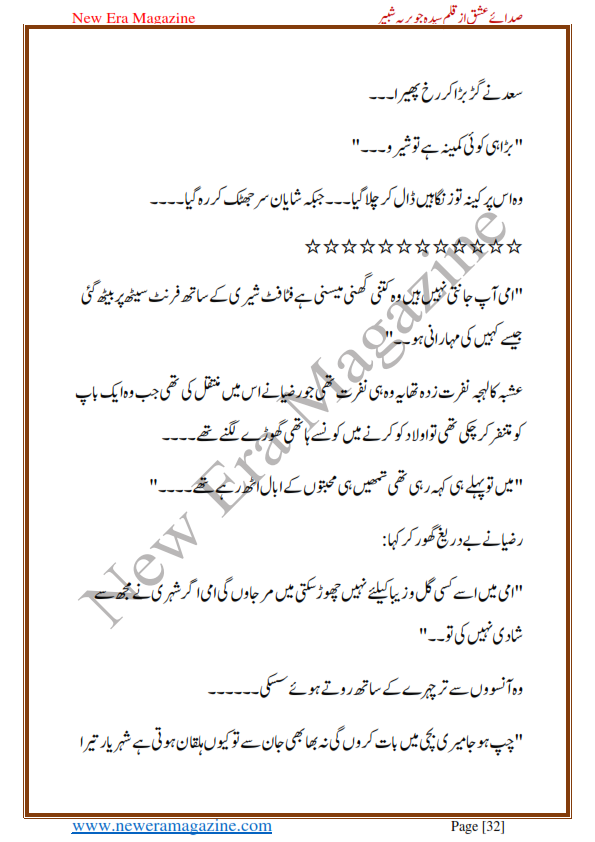 New Era Magazine صدائے عشق از قلم سیدہ جویریہ شبیر
سعد نے گڑبڑا کر رخ پھیرا۔۔۔
"بڑا ہی کوئی کمینہ ہے تو شیرو۔۔۔"
وہ اس پر کینہ توز نگاہیں ڈال کر چلا گیا۔۔۔ جبکہ شایان سر جھٹک کر رہ گیا۔۔۔۔
☆☆☆☆☆☆☆☆☆☆☆☆
"امی آپ جانتی نہیں ہیں وہ کتنی گھنی میسنی ہے فٹافٹ شیری کے ساتھ فرنٹ سیٹھ پر بیٹھ گئی
جیسے کہیں کی مہارانی ہو۔۔"
عشبہ کا لہجہ نفرت زدہ تھا یہ وہ ہی نفرت تھی جو رضیا نے اس میں منتقل کی تھی جب وہ ایک باپ
کو متنفر کر چکی تھی تو اولاد کو کرنے میں کونسے ہاتھی گھوڑے لگنے تھے۔۔۔۔
"میں تو پہلے ہی کہہ رہی تھی تمھیں ہی محبتوں کے ابال اٹھ رہے تھے۔۔۔۔"
رضیا نے بے دریغ گھور کر کہا:
"امی میں اسے کسی گل و زیبا کیلئے نہیں چھوڑ سکتی میں مر جاوں گی امی اگر شہری نے مجھ سے
شادی نہیں کی تو۔۔"
وہ آنسووں سے تر چہرے کے ساتھ روتے ہوئے سسکی۔۔۔۔۔۔
"چپ ہو جا میری بچی میں بات کروں گی نہ بھابھی جان سے تو کیوں ہلقان ہوتی ہے شہریار تیرا
New Era Magazine
www.neweramagazine.com Page [32]